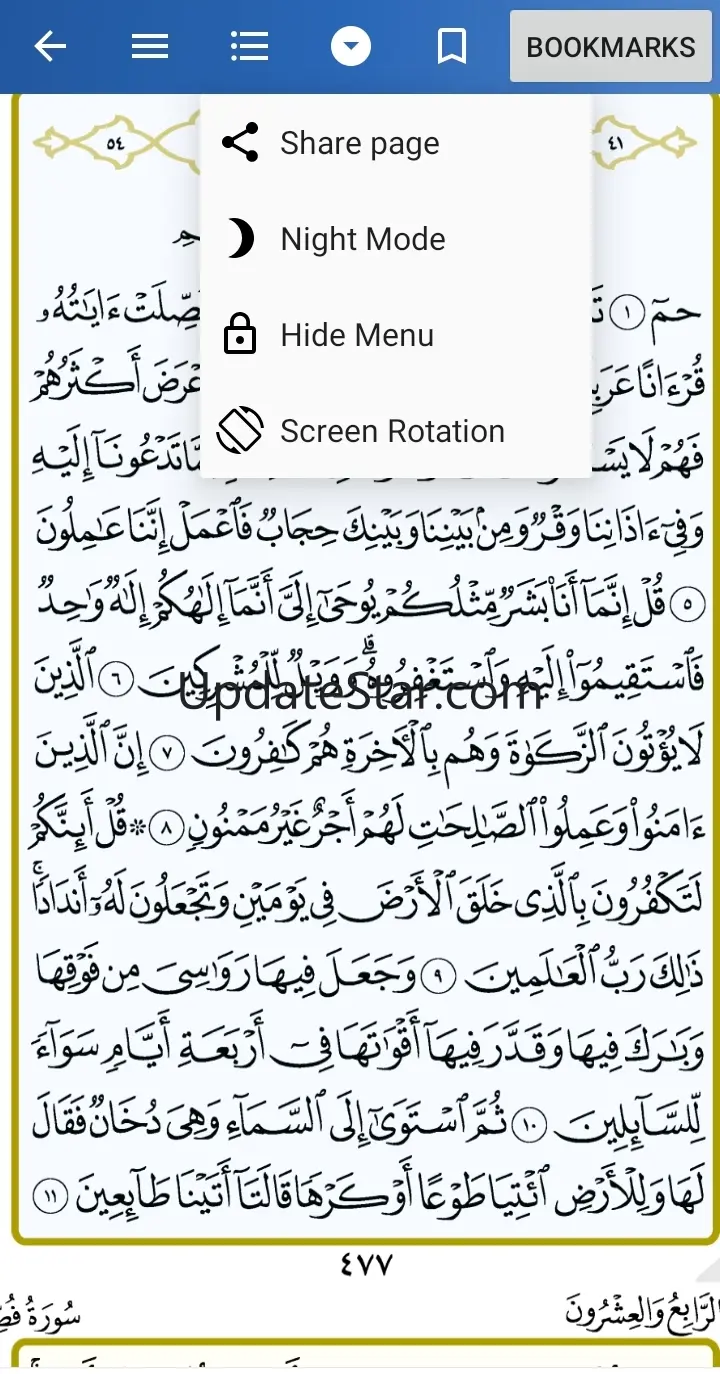 BOOKMARKS
Share page
Night Mode
Hide Menu
Screen Rotation
٤١
٥٤
حمٓ ١ ءَايَٰتُهُۥ
قُرْءَانًا أَكْثَرُهُمْ
فَهُمْ لَا تَدْعُونَآ إِلَيْهِ
وَفِىٓ ءَاذَانِنَا وَقْرٌ وَمِنۢ بَيْنِنَا وَبَيْنِكَ حِجَابٌ فَٱعْمَلْ إِنَّنَا عَٰمِلُونَ
٥ قُلْ إِنَّمَآ أَنَا۠ بَشَرٌ مِّثْلُكُمْ يُوحَىٰٓ إِلَىَّ أَنَّمَآ إِلَٰهُكُمْ إِلَٰهٌ وَٰحِدٌ
فَٱسْتَقِيمُوٓا۟ إِلَيْهِ وَٱسْتَغْفِرُوهُ ۗ وَوَيْلٌ لِّلْمُشْرِكِينَ ٦ ٱلَّذِينَ
UpdateStar.com
لَا يُؤْتُونَ ٱلزَّكَوٰةَ وَهُم بِٱلْءَاخِرَةِ هُمْ كَٰفِرُونَ ٧ إِنَّ ٱلَّذِينَ
ءَامَنُوا۟ وَعَمِلُوا۟ ٱلصَّٰلِحَٰتِ لَهُمْ أَجْرٌ غَيْرُ مَمْنُونٍ ٨ ۞ قُلْ أَئِنَّكُمْ
لَتَكْفُرُونَ بِٱلَّذِى خَلَقَ ٱلْأَرْضَ فِى يَوْمَيْنِ وَتَجْعَلُونَ لَهُۥٓ أَندَادًا ۚ
ذَٰلِكَ رَبُّ ٱلْعَٰلَمِينَ ٩ وَجَعَلَ فِيهَا رَوَٰسِىَ مِن فَوْقِهَا
وَبَٰرَكَ فِيهَا وَقَدَّرَ فِيهَآ أَقْوَٰتَهَا فِىٓ أَرْبَعَةِ أَيَّامٍ سَوَآءً
لِّلسَّآئِلِينَ ١٠ ثُمَّ ٱسْتَوَىٰٓ إِلَى ٱلسَّمَآءِ وَهِىَ دُخَانٌ فَقَالَ
لَهَا وَلِلْأَرْضِ ٱئْتِيَا طَوْعًا أَوْ كَرْهًا قَالَتَآ أَتَيْنَا طَآئِعِينَ ١١
٤٧٧
الرَّابِعُ وَالعِشْرُونَ
سُورَةُ